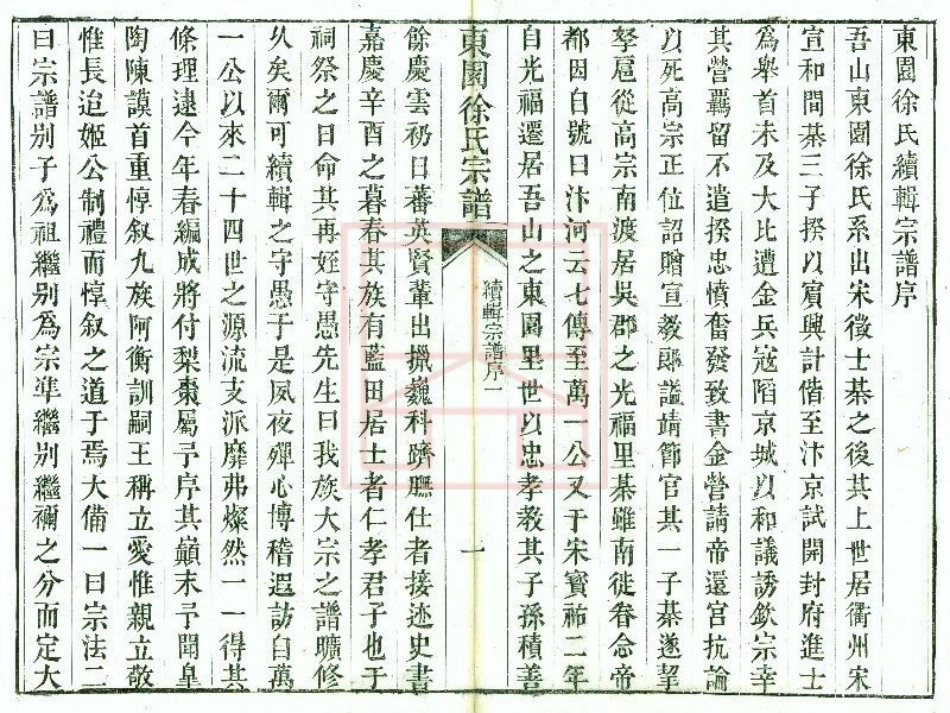 東園徐氏續輯宗譜序
吾山東園徐氏系出宋徵士綦之後其上世居衢州宋
宣和間綦三子揆以賓興計偕至汴京試開封府進士
為舉首未及大比遭金兵寇陷京城以和議誘欽宗幸
其營羈留不遣揆忠憤奮發致書金營請帝還宮抗論
以死高宗正位詔贈宣教郎諡靖節官其一子綦遂挈
孥扈從高宗南渡居吳郡之光福里綦雖南徙眷念帝
都因自號曰汴河云七傳至萬一公又于宋寳祐二年
自光福遷居吾山之東園里世以忠孝教其子孫積善
東園徐氏宗譜
續輯宗譜序一
一
餘慶雲礽日蕃英賢輩出擢巍科躋膴仕者接迹史書
嘉慶辛酉之暮春其族有藍田居士者仁孝君子也于
祠祭之日命其再姪守愚先生曰我族大宗之譜曠修
乆矣爾可續輯之守愚于是夙夜殫心博稽遐訪自萬
一公以來二十四世之源流支派靡弗燦然一一得其
條理逺今年春編成將付梨棗屬予序其巔末予聞臯
陶陳謨首重惇叙九族阿衡訓嗣王稱立愛惟親立敬
惟長迨姬公制禮而惇叙之道于焉大備一曰宗法二
曰宗譜别子為祖繼别為宗凖繼别繼禰之分而定大